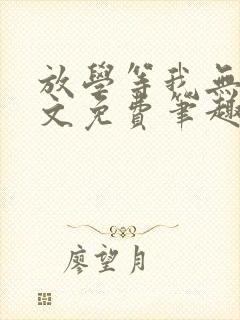 放學等我無
文免費筆趣
廖望月